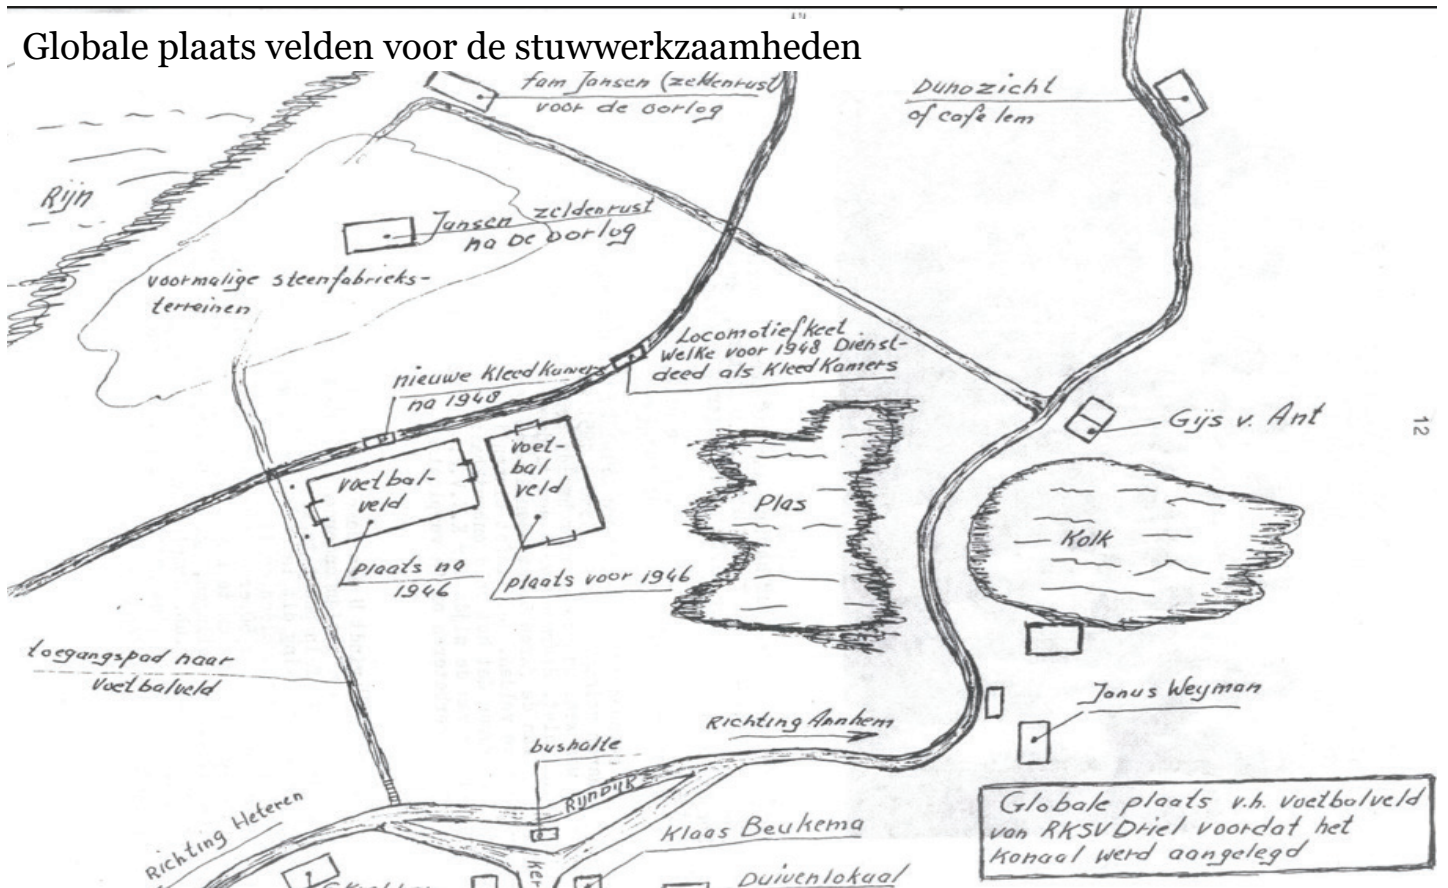 Globale plaats velden voor de stuwwerkzaamheden
fam Jansen (zeldenrust)
voor de oorlog
Dunozicht
of cafe lem
Rijn
Jansen zeldenrust
na de oorlog
voormalige steenfabrieks-
terreinen
Locomotiefkeet
welke voor 1948 Dienst-
deed als KleedKamers
nieuwe KleedKamers
na 1948
Gijs v. Ant
12
voetbal-
veld
voet-
bal
veld
Plas
Kolk
plaats na
1946
plaats voor 1946
toegangspad naar
voetbalveld
Janus Weyman
Richting Arnhem
bushalte
RijnDijk
Richting Heteren
Klaas Beukema
Globale plaats v.h. voetbalveld
van RKSV Driel voordat het
Kanaal werd aangelegd
Duivenlokaal